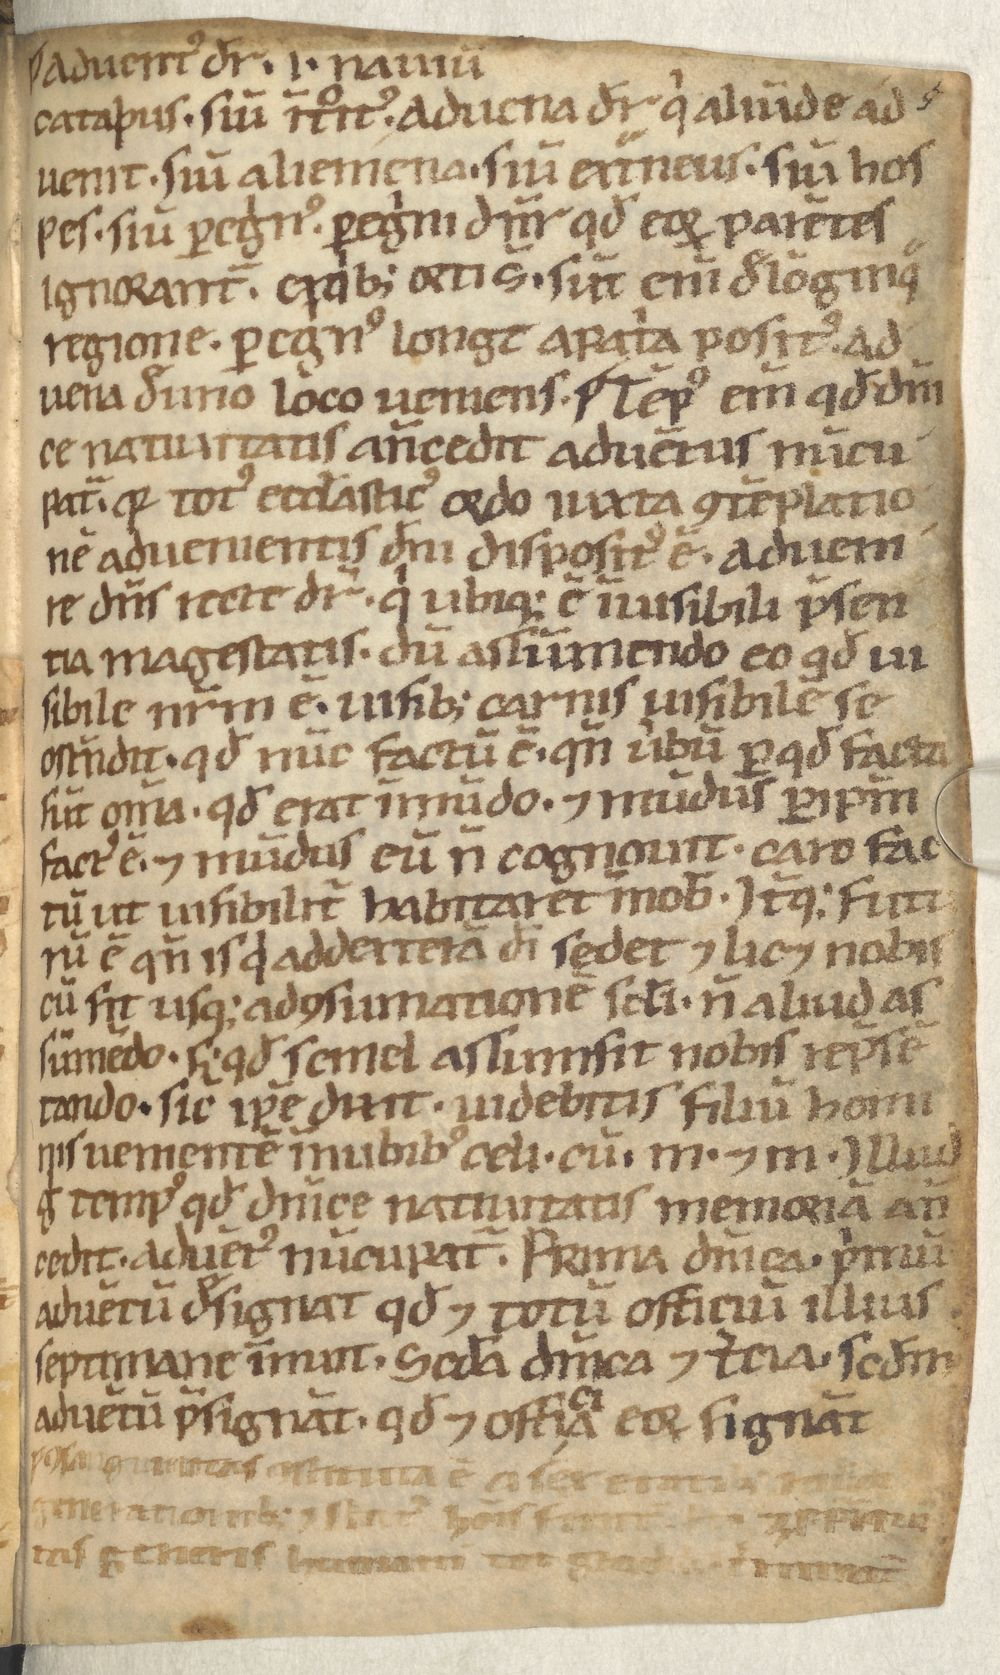 aduent᷒ dr̄. i. nauiu
catapus. siū īt̄oit᷒. Aduena dr̄ qͥ aliūde ad
uenit. siū aliemēna. siū ext̄neus. siū hos
pes. siū ꝑegͥn᷒. ꝑegͥni dn̄r qd̄ eoꝝ parētes
Ignorant̄. e qͥb; orti s̄. sūt eni d̄ lōginq̄
regione. ꝑegͥn᷒ longe apatͥa posit᷒. ad
uena d̄ uno loco ueniens. Tēp᷒ eni qd̄ dn̄i
ce natiuitatis an̄cedit aduētus nūcu
pat̄. qꝛ tot᷒ eccl̄astic᷒ ordo iuxta ꝯtēplatio
nē aduenientis dn̄i disposit᷒ ē. adueni
re dn̄s recte dr̄. qͥ ubiq; ē īuisibili p̄sen
tia magestatis. dū assūmendo eo qd̄ ui
sibile nr̄m ē. uisib; carnis uisibilē se
ostn̄dit. qd̄ nūc factū ē. qn̄ ūbū ꝑ qd̄ facta
sūt om̄ia. qd̄ erat ī mūdo. ⁊ mūdus ꝑ ip̄m
fact᷒ ē. ⁊ mūdus eū n̄ cognouit. caro fac
tū ut uisibilit̄ habitaret ī nob̄. Itq̄; futu
rū ē qn̄ is qͥ ad dexterā dī sedet ⁊ lic⁊ nobis
cū sit usq; ad ꝯsūmationē sc̄li. n̄ aliud as
sūmēdo. s; qd̄ semel assumsit nobis rep̄sē
tando. sic ip̄e dixit. uidebitis filiū homi
nis uenientē ī nubib᷒ celi. cū. m. ⁊ m. Illud
g̊ temp᷒ qd̄ dn̄ice natiuitatis memoriā an̄
cedit. aduēt᷒ nūcupat̄. Prima dn̄ica. pͥmū
aduētū d̄signat qd̄ ⁊ totū officiū illius
septimane īnuit. Scd̄a dn̄ica ⁊ t̄cia. scd̄m
aduētū p̄signāt. qd̄ ⁊ officia eoꝝ signāt
generationib; ⁊
tas generis humani tot